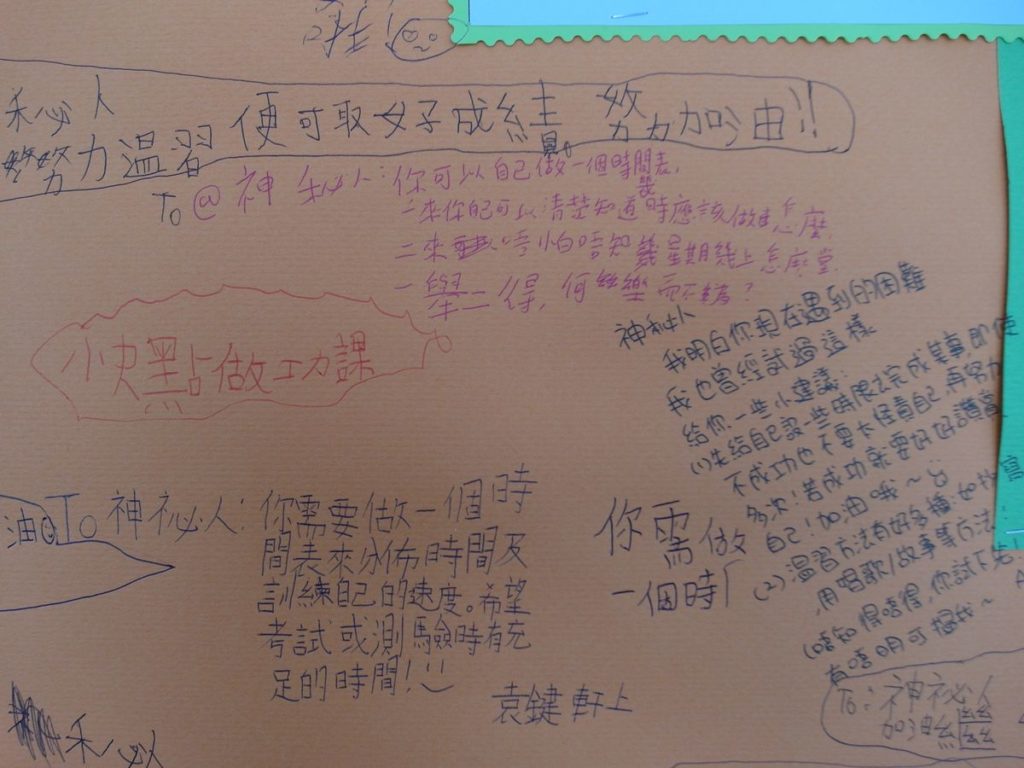 秘人
努力溫習 便可取好成績 努力加油!!
To @ 神秘人: 你可以自己做一個時間表,
一來你自己可以清楚知道時應該做怎麼
二來 唔怕唔知幾星期幾上怎麼堂
一舉二得, 何樂而不為?
小快點做功課
神秘人
我明白你現在遇到的困難
我也曾經試過這樣。
給你一些小建議:
(1)先給自己設一些時限去完成某事,即使
不成功也不要太怪責自己,再努力
多次!若成功就要好好讚賞
自己!加油哦~
(2)溫習方法有好多種,如
用唱歌/故事等方法!
(唔知得唔得,你試下先!
有唔明可搵我~
油
To 神祕人: 你需要做一個時
間表來分佈時間及
訓練自己的速度。希望
考試或測驗時有充
足的時間!
袁鍵軒上
你需做
一個時
To: 神祕人
加油